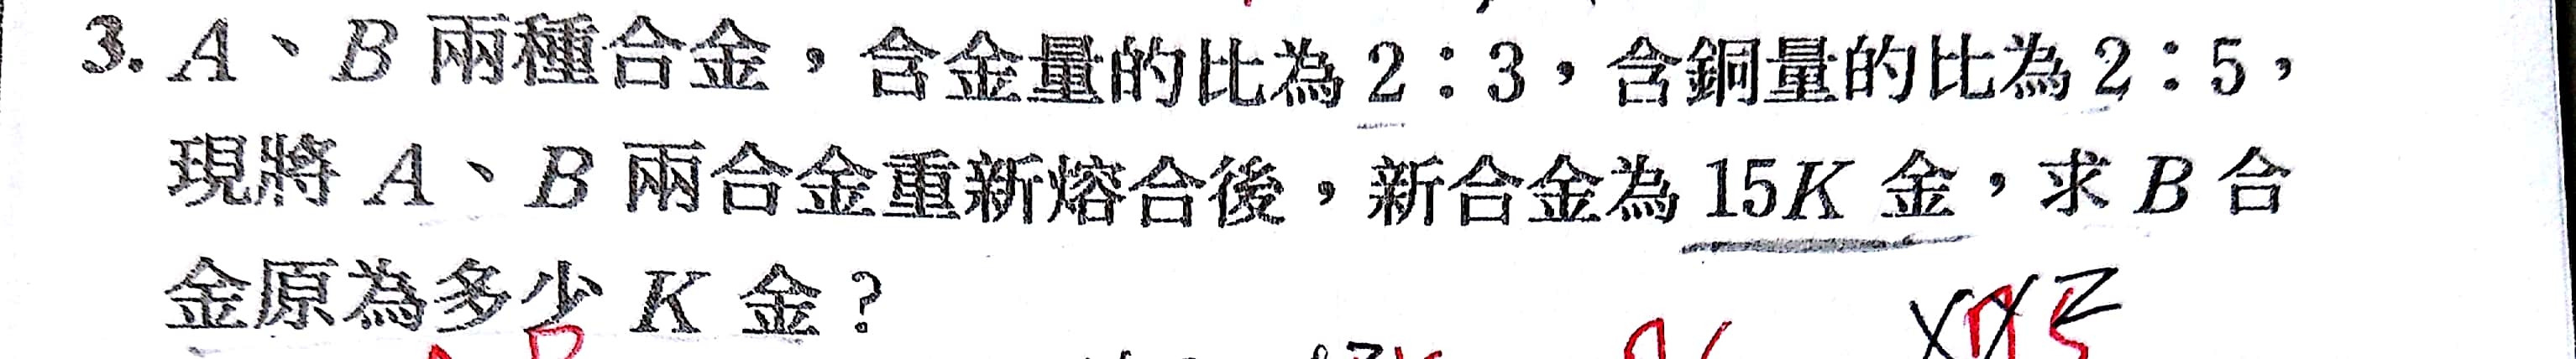 3. A、B 兩種合金，含金量的比為 2：3，含銅量的比為 2：5，
現將 A、B 兩合金重新熔合後，新合金為 15K 金，求 B 合
金原為多少 K 金？